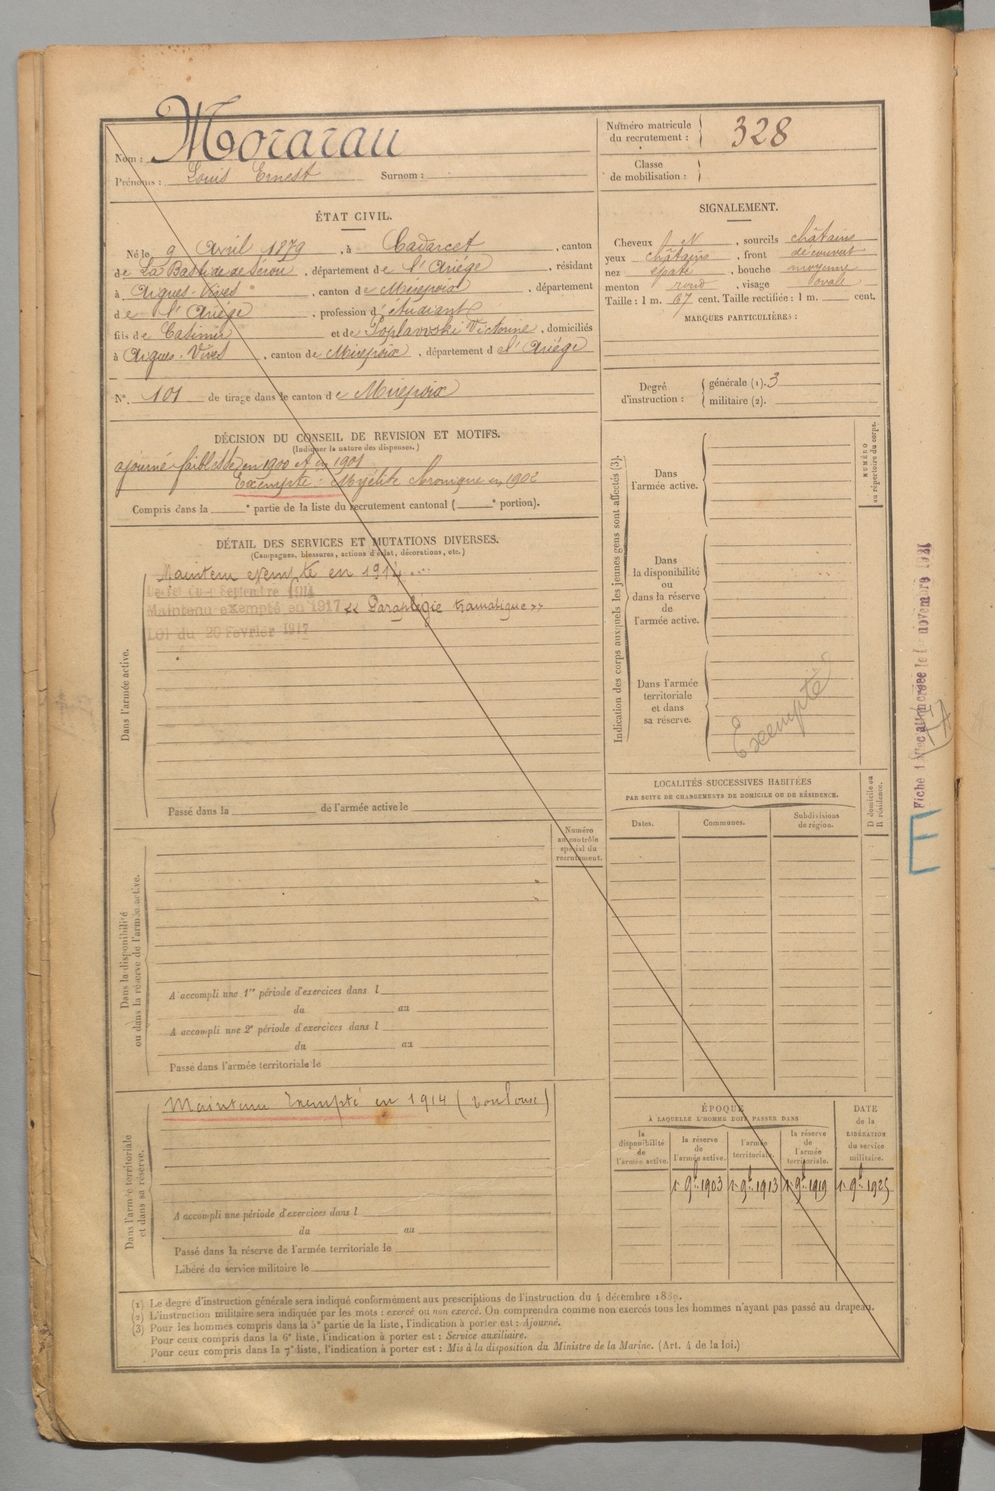 Nom : Morarau
Prénoms : Louis Ernest Surnom :
Numéro matricule du recrutement : 328
Classe de mobilisation :
ÉTAT CIVIL.
Né le 9 Avril 1879, à Cadarcet, canton
de La Bastide de Sérou, département de l'Ariége, résidant
à Aigues-Vives, canton de Mirepoix, département
de l'Ariége, profession d'étudiant
fils de Casimir et de Poplavoski Victorine, domiciliés
à Aigues-Vives, canton de Mirepoix, département de l'Ariége
N°. 101 de tirage dans le canton de Mirepoix
SIGNALEMENT.
Cheveux N, sourcils châtains
yeux châtains, front découvert
nez épaté, bouche moyenne
menton rond, visage ovale
Taille : 1 m. 67 cent. Taille rectifiée : 1 m. cent.
MARQUES PARTICULIÈRES :
Degré d'instruction : générale (1). 3
militaire (2).
DÉCISION DU CONSEIL DE REVISION ET MOTIFS.
(Indiquer la nature des dispenses.)
ajourné faiblesse en 1900 et en 1901
Exempté - Myélite chronique en 1902
Compris dans la e partie de la liste du recrutement cantonal ( e portion).
DÉTAIL DES SERVICES ET MUTATIONS DIVERSES.
(Campagnes, blessures, actions d'éclat, décorations, etc.)
Dans l'armée active.
Maintenu exempté en 1914
Septembre 1914
Maintenu exempté en 1917 « Paraplegie tramatique »
Loi du 20 Février 1917
Passé dans la de l'armée active le
Indication des corps auxquels les jeunes gens sont affectés (3).
Dans l'armée active.
Dans la disponibilité ou dans la réserve de l'armée active.
Dans l'armée territoriale et dans sa réserve.
Exempté
NUMÉRO au répertoire du corps.
LOCALITÉS SUCCESSIVES HABITÉES
PAR SUITE DE CHANGEMENTS DE DOMICILE OU DE RÉSIDENCE.
Dates. Communes. Subdivisions de région.
D domicile ou R résidence.
Numéro au contrôle spécial du recrutement.
Dans la disponibilité ou dans la réserve de l'armée active.
A accompli une 1re période d'exercices dans l
du au
A accompli une 2e période d'exercices dans l
du au
Passé dans l'armée territoriale le
Dans l'armée territoriale et dans sa réserve.
Maintenu Exempté en 1914 (Toulouse)
A accompli une période d'exercices dans l
du au
Passé dans la réserve de l'armée territoriale le
Libéré du service militaire le
ÉPOQUE
À LAQUELLE L'HOMME DOIT PASSER DANS
la disponibilité de l'armée active.
la réserve de l'armée active.
l'armée territoriale.
la réserve de l'armée territoriale.
DATE de la LIBÉRATION du service militaire.
1r 9bre 1903 1r 9bre 1913 1r 9bre 1919 1r 9bre 1925
(1) Le degré d'instruction générale sera indiqué conformément aux prescriptions de l'instruction du 4 décembre 1889.
(2) L'instruction militaire sera indiquée par les mots : exercé ou non exercé. On comprendra comme non exercés tous les hommes n'ayant pas passé au drapeau.
(3) Pour les hommes compris dans la 5e partie de la liste, l'indication à porter est : Ajourné.
Pour ceux compris dans la 6e liste, l'indication à porter est : Service auxiliaire.
Pour ceux compris dans la 7e liste, l'indication à porter est : Mis à la disposition du Ministre de la Marine. (Art. 4 de la loi.)
E